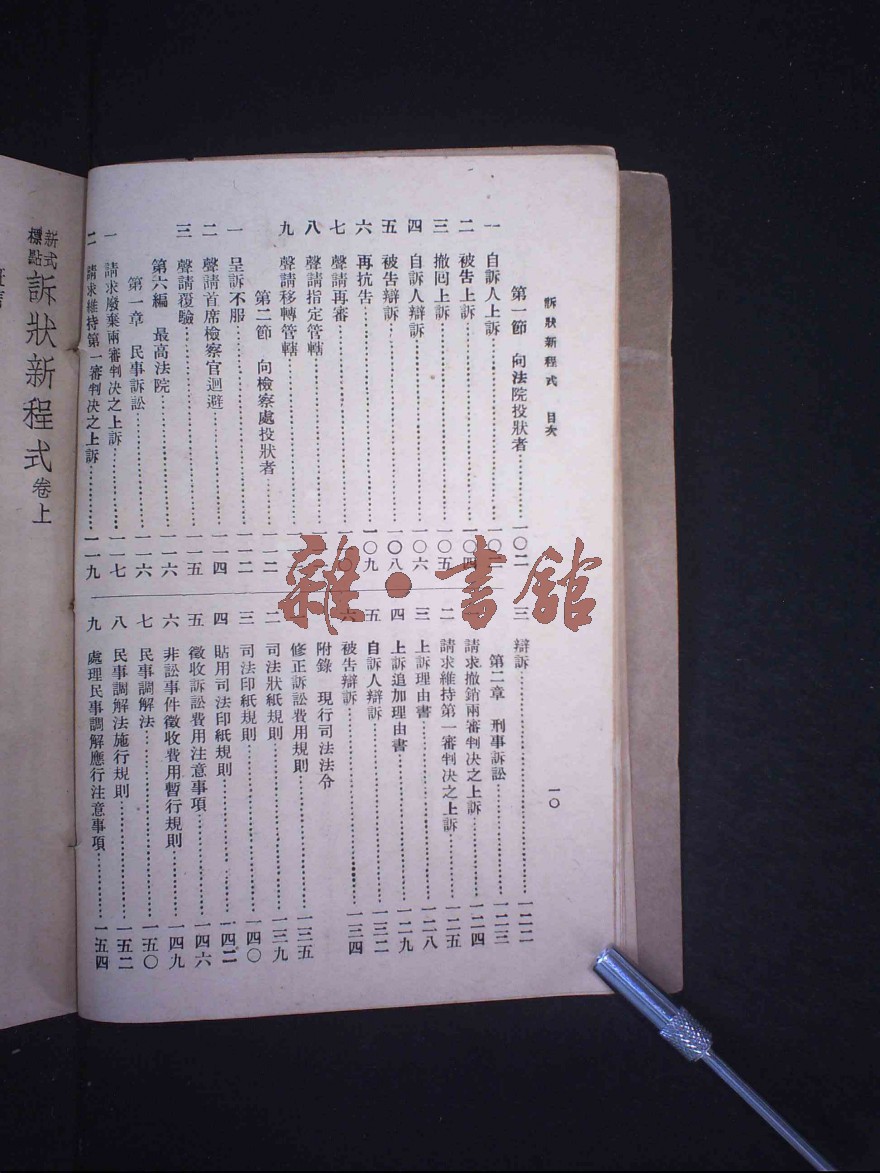 訴狀新程式　目次
一〇
第一節　向法院投狀者…一〇二
一　自訴人上訴…一〇二
二　被告上訴…一〇四
三　撤回上訴…一〇五
四　自訴人辯訴…一〇六
五　被告辯訴…一〇八
六　再抗告…一〇九
七　聲請再審
八　聲請指定管轄
九　聲請移轉管轄
第二節　向檢察處投狀者…一一二
一　呈訴不服…一一二
二　聲請首席檢察官迴避…一一四
三　聲請覆驗…一一五
第六編　最高法院…一一六
第一章　民事訴訟…一一六
一　請求廢棄兩審判決之上訴…一一七
二　請求維持第一審判決之上訴…一一九
三　辯訴…一二二
第二章　刑事訴訟…一二三
一　請求撤銷兩審判决之上訴…一二四
二　請求維持第一審判决之上訴…一二五
三　上訴理由書…一二八
四　上訴追加理由書…一二九
五　自訴人辯訴…一三二
六　被告辯訴…一三四
附錄　現行司法法令
修正訴訟費用規則…一三五
二　司法狀紙規則…一三九
三　司法印紙規則…一四〇
四　貼用司法印紙規則…一四二
五　徵收訴訟費用注意事項…一四六
六　非訟事件徵收費用暫行規則…一四九
七　民事調解法…一五〇
八　民事調解法施行規則…一五二
九　處理民事調解應行注意事項…一五四
新式標點訴狀新程式卷上
雜·書館